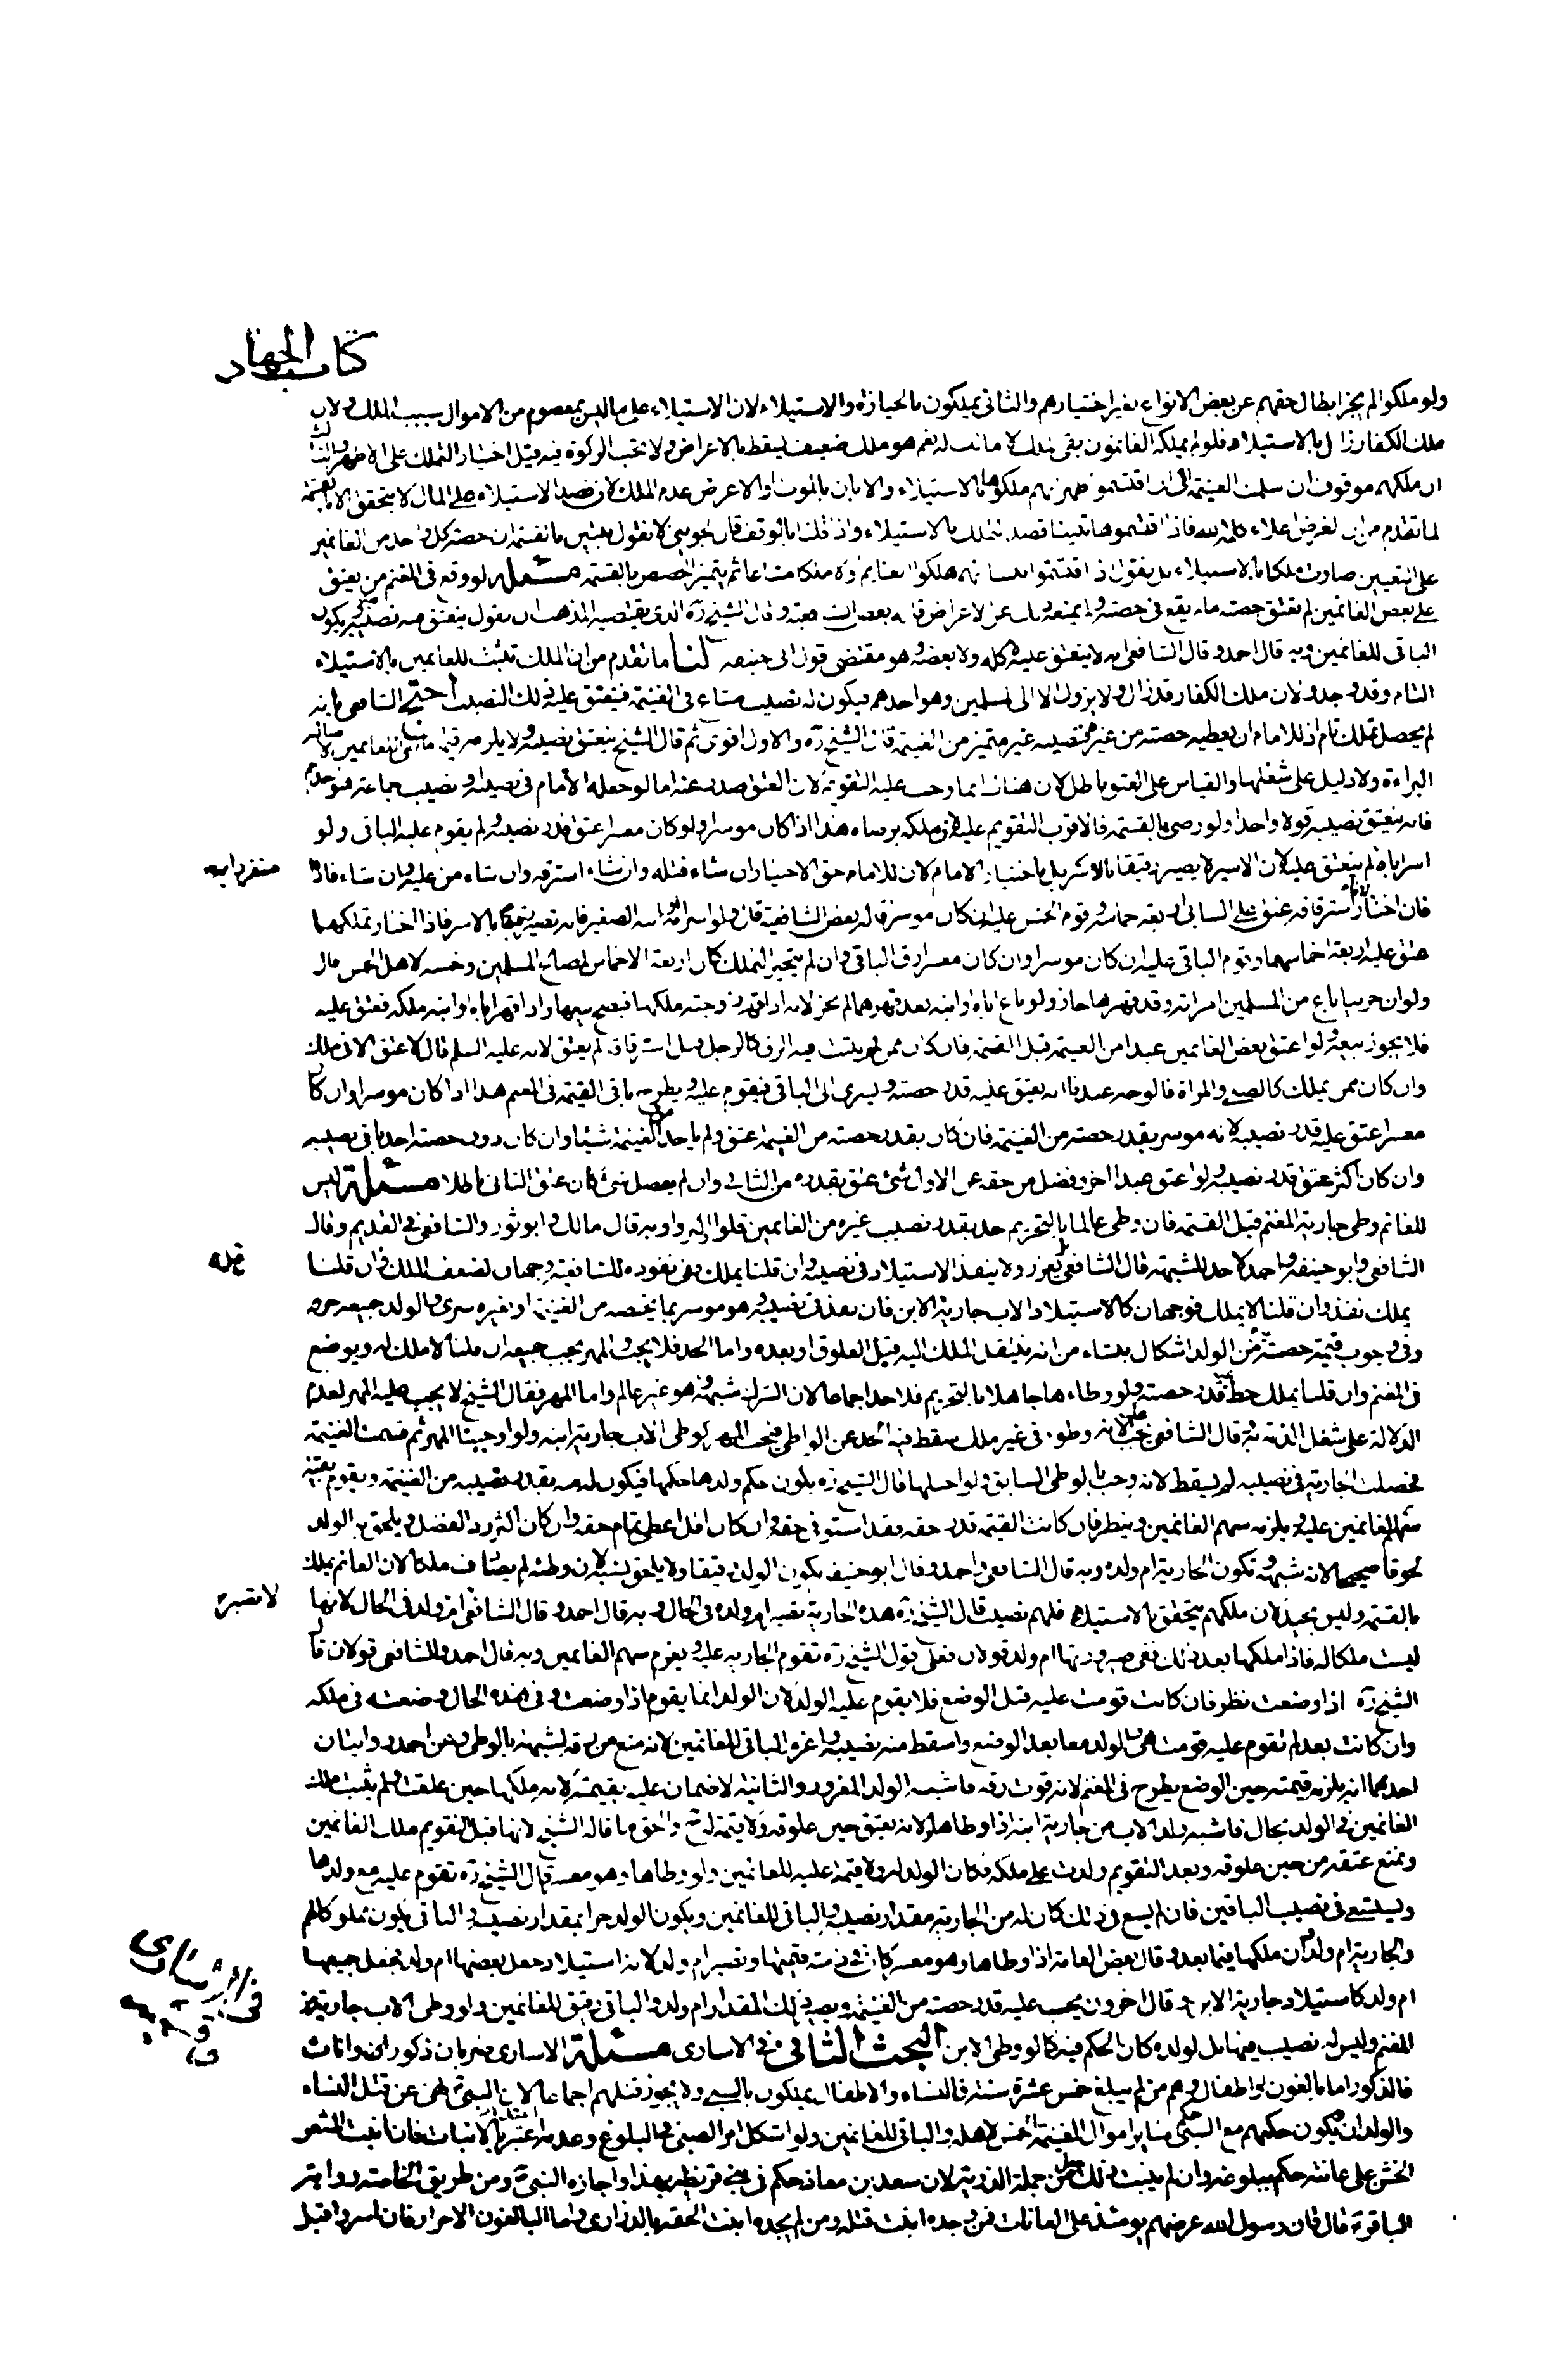 كتاب الجهاد
ولو ملكوا لم يجز ابطال حقهم عن بعض الانواع بغير اختيارهم والثاني يملكون بالحيازة والاستيلاء لان الاستيلاء على ما ليس بمعصوم من الاموال سبب الملك ولان
ملك الكفار زال بالاستيلاء فلو لم يملكه الغانمون بقي ملك لا مالك له نعم هو ملك ضعيف يسقط بالاعراض ولا تجب الزكوة فيه قبل اختيار التملك على الاظهر والثالث
ان ملكهم موقوف ان سلمت الغنيمة الى ان اقتسموا ظهر انهم ملكوها بالاستيلاء والا بان بالموت او الاعراض عدم الملك لان قصد الاستيلاء على المال لا يتحقق الا بالقسمة
لما تقدم من ان الغرض اعلاء كلمة الله فاذا اقتسموها تبينا قصد التملك بالاستيلاء واذا قلنا بالوقف قال الجويني لا نقول يتبين بالقسمة ان حصة كل واحد من الغانمين
على التعيين صارت ملكا بالاستيلاء بل نقول اذا اقتسموا تبينا انهم ملكوا الغنايم ملكا مشاعا ثم يتميز الحصص بالقسمة مسئلة لو وقع في المغنم من يعتق
على بعض الغانمين لم يعتق حصته ما لم يقع في حصته ولم يمنعه ذلك عن الاعراض قاله بعض الشافعية وقال الشيخ ره الذي يقتضيه المذهب ان نقول ينعتق منه نصيبه ويكون
الباقي للغانمين وبه قال احمد وقال الشافعي انه لا ينعتق عليه لا كله ولا بعضه وهو مقتضى قول ابي حنيفه لنا ما تقدم من ان الملك يثبت للغانمين بالاستيلاء
التام وقد وجد ولان ملك الكفار قد زال ولا يزول الا الى المسلمين وهو احدهم فيكون له نصيب مشاع في الغنيمة فينعتق عليه ذلك النصيب احتج الشافعي بانه
لم يحصل تملك تام اذ للامام ان يعطيه حصته من غيره فنصيبه غير متميز من الغنيمة قال الشيخ ره والاول اقوى ثم قال الشيخ ينعتق نصيبه ولا يلزمه قيمة ما يبقى للغانمين لاصالة
البراءة ولا دليل على شغلها والقياس على العتق باطل لان هناك انما وجب عليه التقويم لان العتق صدر عنه اما لو جعله الامام في نصيبه او نصيب جماعة هو احدهم
فانه ينعتق نصيبه قولا واحدا ولو رضي بالقسمة فالاقرب التقويم عليه لانه ملكه برضاه هذا اذا كان موسرا ولو كان معسرا عتق قدر نصيبه ولم يقوم عليه الباقي ولو
اسر اباه لم ينعتق عليه لان الاسير لا يصير رقيقا بالاسر بل باختيار الامام لان للامام حق الاختيار ان شاء قتله وان شاء استرقه وان شاء من عليه وان شاء فاداه
فان اختار الامام استرقاقه عتق على السابي اربعة اخماسه وقوم الخمس عليه ان كان موسرا قاله بعض الشافعية قال ولو اسر امه او ابنه الصغير فانه يصير رقيقا بالاسر فاذا اختار تملكهما
عتق عليه اربعة اخماسهما وقوم الباقي عليه ان كان موسرا وان كان معسرا رق الباقي وان لم يتخير التملك كان اربعة الاخماس لمصالح المسلمين وخمسه لاهل الخمس قال
ولو ان حربيا باع من المسلمين امراته وقد قهرها جاز ولو باع اباه او ابنه بعد قهرهما لم يجز لانه اذا قهر زوجته ملكها فيصح بيعها واذا قهر اباه او ابنه ملكه فعتق عليه
فلا يجوز بيعه ولو اعتق بعض الغانمين عبدا من الغنيمة قبل القسمة فان كان ممن لم يثبت فيه الرق كالرجل قبل استرقاقه لم يعتق لانه عليه السلم قال لا عتق الا في ملك
وان كان ممن يملك كالصبي والمراة فالوجه عندنا انه يعتق عليه قدر حصته ويسري الى الباقي فيقوم عليه ويطرح باقي القيمة في المغنم هذا اذا كان موسرا وان كان
معسرا عتق عليه قدر نصيبه لانه موسر بقدر حصته من الغنيمة فان كان بقدر حصته من الغنيمة عتق ولم ياخذ من الغنيمة شيئا وان كان دون حصته اخذ باقي نصيبه
وان كان اكثر عتق قدر نصيبه ولو اعتق عبدا اخر وفضل من حقه عن الاول شئ عتق بقدره من الثاني وان لم يفضل شئ كان عتق الثاني باطلا مسئلة ليس
للغانم وطي جارية المغنم قبل القسمة فان وطي عالما بالتحريم حد بقدر نصيب غيره من الغانمين قلوا او كثروا وبه قال مالك وابو ثور والشافعي في القديم وقال
الشافعي وابو حنيفه واحمد لا حد للشبهة قال الشافعي يعزر ولا ينفذ الاستيلاد في نصيبه وان قلنا يملك وفي نفوذه للشافعية وجهان لضعف الملك فان قلنا
يملك نفذ وان قلنا لا يملك فوجهان كالاستيلاد الاب جارية الابن فان نفذ في نصيبه وهو موسر بما يخصه من الغنيمة او بغيره سرى والولد جميعه حر
وفي وجوب قيمة حصته من الولد اشكال ينشاء من انه ينتقل الملك اليه قبل العلوق او بعده واما الحد فلا يجب والمهر يجب جميعه ان قلنا لا ملك له ويوضع
في المغنم وان قلنا يملك حط عنه قدر حصته ولو وطاءها جاهلا بالتحريم فلا حد اجماعا لان الشركة شبهة وهو غير عالم واما المهر فقال الشيخ لا يجب عليه المهر لعدم
الدلالة على شغل الذمة به وقال الشافعي يجب عليه لانه وطؤ في غير ملك سقط فيه الحد عن الواطي فيجب المهر كوطي الاب جارية ابنه ولو اوجبنا المهر ثم قسمت الغنيمة
فحصلت الجارية في نصيبه لم يسقط لانه وجب بالوطي السابق ولو احبلها قال الشيخ ره يكون حكم ولدها حكمها فيكون له منه بقدر نصيبه من الغنيمة ويقوم بقية
سهم الغانمين عليه ويلزمه سهم الغانمين وينظر فان كانت القيمة قدر حقه فقد استوفي حقه وان كان اقل اعطي تمام حقه وان كان اكثر رد الفضل ويلحق به الولد
لحوقا صحيحا لانه شبهة وتكون الجارية ام ولده وبه قال الشافعي واحمد وقال ابو حنيفه يكون الولد رقيقا ولا يلحق نسبه لان وطئه لم يصادف ملكا لان الغانم يملك
بالقسمة وليس بجيد لان ملكهم يتحقق بالاستيلاء فلهم نصيب قال الشيخ ره هذه الجارية تصير ام ولده في الحال وبه قال احمد وقال الشافعي لا تصير ام ولد في الحال لانها
ليست ملكا له فاذا ملكها بعد ذلك ففي صيرورتها ام ولد قولان فعلى قول الشيخ ره تقوم الجارية عليه ويغرم سهم الغانمين وبه قال احمد وللشافعي قولان قال
الشيخ ره اذا وضعت نظر فان كانت قومت عليه قبل الوضع فلا يقوم عليه الولد لان الولد انما يقوم اذا وضعت وفي هذه الحال وضعته في ملكه
وان كانت بعد لم تقوم عليه قومت هي والولد معا بعد الوضع واسقط منه نصيبه واغرم الباقي للغانمين لانه منع من رقه لشبهة بالوطي وعن احمد روايتان
احدهما انه يلزمه قيمته حين الوضع يطرح في المغنم لانه فوت رقه فاشبه الولد المغرور والثانية لا ضمان عليه بقيمته لانه ملكها حين علقت ولم يثبت ملك
الغانمين في الولد بحال فاشبه ولد الاب من جارية ابنه اذا وطاها ولانه يعتق حين علوقه ولا قيمة له ح والحق ما قاله الشيخ لانها قبل التقويم ملك الغانمين
ونمنع عتقه من حين علوقه وبعد التقويم ولدت على ملكه فكان الولد له ولا قيمة عليه للغانمين ولو وطاها وهو معسر قال الشيخ ره تقوم عليه مع ولدها
ويستسعى في نصيب الباقين فان لم يسع في ذلك كان له من الجارية مقدار نصيبه والباقي للغانمين ويكون الولد حرا بمقدار نصيبه والباقي يكون مملوكا لهم
والجارية ام ولد ان ملكها فيما بعد وقال بعض العامة اذا وطاها وهو معسر كان في ذمته قيمتها وتصير ام ولد لانه استيلاد جعل بعضها ام ولد فجعل جميعها
ام ولد كاستيلاد جارية الابن وقال اخرون يحسب عليه قدر حصته من الغنيمة ويصير ذلك المقدار ام ولد والباقي رقيق للغانمين ولو وطي الاب جارية من
المغنم وليس له نصيب فيها بل لولده كان الحكم فيه كما لو وطي الابن البحث الثاني في الاسارى مسئلة الاسارى ضربان ذكور واناث
فالذكور اما بالغون او اطفال وهم من لم يبلغ خمس عشرة سنة فالنساء والاطفال يملكون بالسبي ولا يجوز قتلهم اجماعا لان النبي ص نهى عن قتل النساء
والولدان ويكون حكمهم مع السبي حكم ساير اموال الغنيمة الخمس لاهله والباقي للغانمين ولو اشكل امر الصبي في البلوغ وعدمه اعتبر بالانبات فان انبت الشعر
الخشن على عانته حكم ببلوغه وان لم ينبت ذلك جعل من جملة الذرية لان سعد بن معاذ حكم في بني قريظه بهذا واجازه النبي ص ومن طريق الخاصة رواية
الباقر ع قال قال ان رسول الله عرضهم يومئذ على العانات فمن وجده انبت قتله ومن لم يجده انبت الحقه بالذراري واما البالغون الاحرار فان اسروا قبل
منفردا به
لا تصير